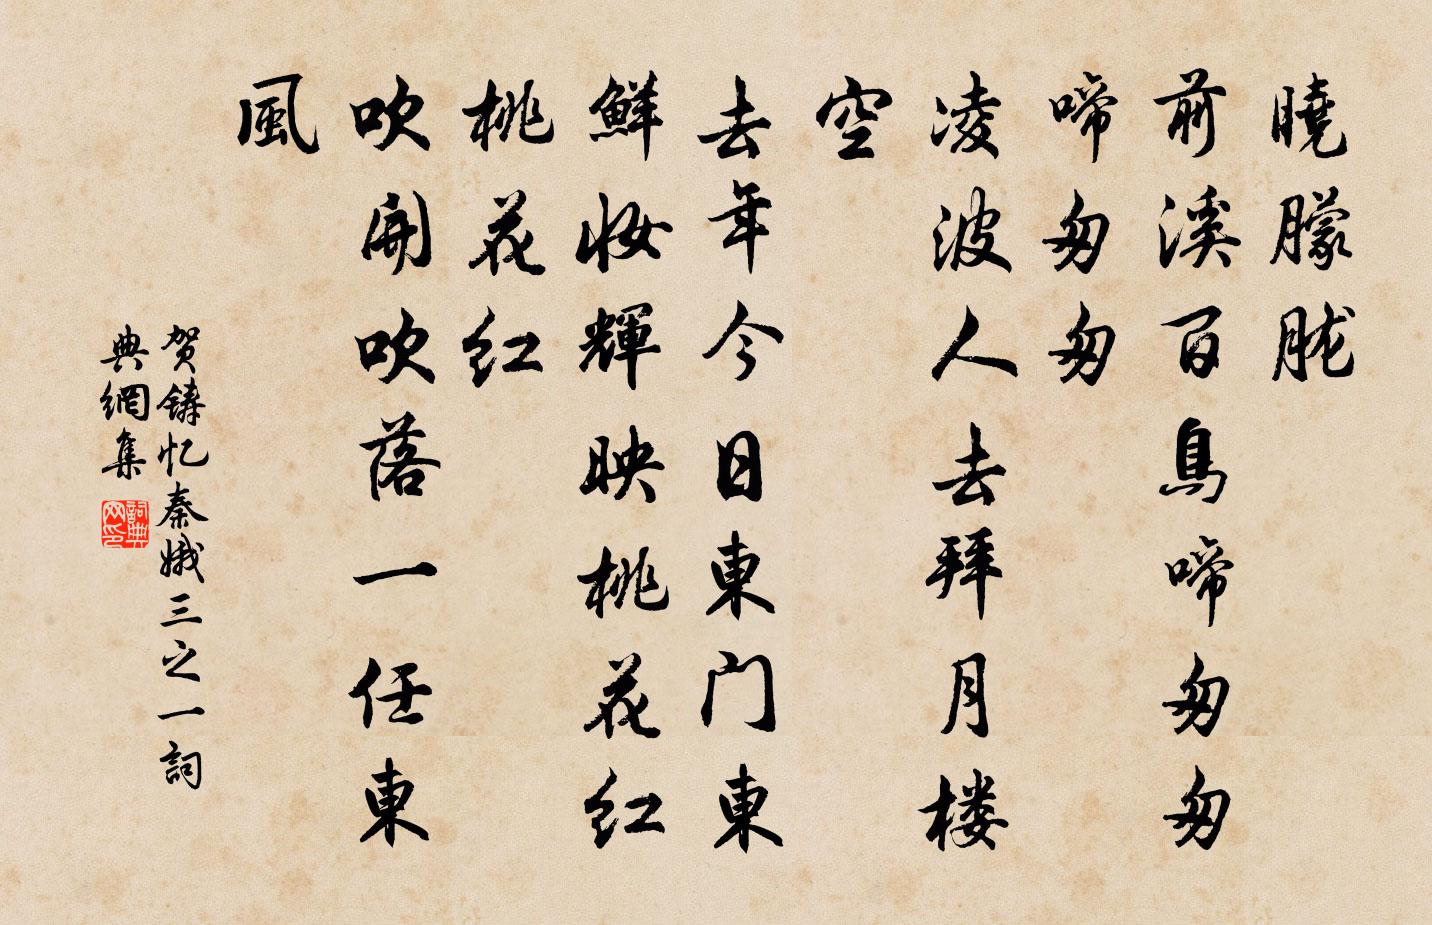 曉朦胧
前溪百鳥啼匆匆
啼匆匆
凌波人去拜月楼
空
去年今日東门東
鮮妆輝映桃花红
桃花红
吹開吹落一任東
風
贺鑄忆秦娥三之一詞
典網集
詞典
网印